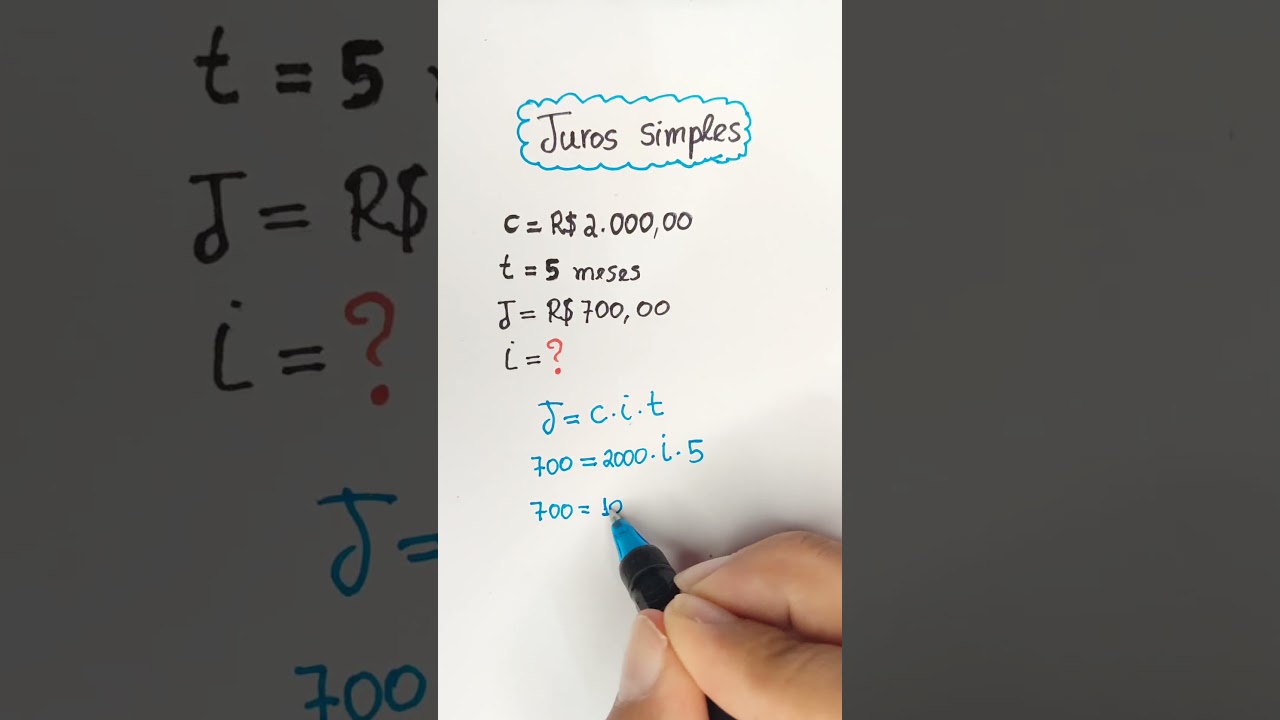 Juros simples
c = R$ 2.000,00
t = 5 meses
J = R$ 700,00
i = ?
J = c . i . t
700 = 2000 . i . 5
700 = 10
t = 5
J = R$
i = ?
J =
700